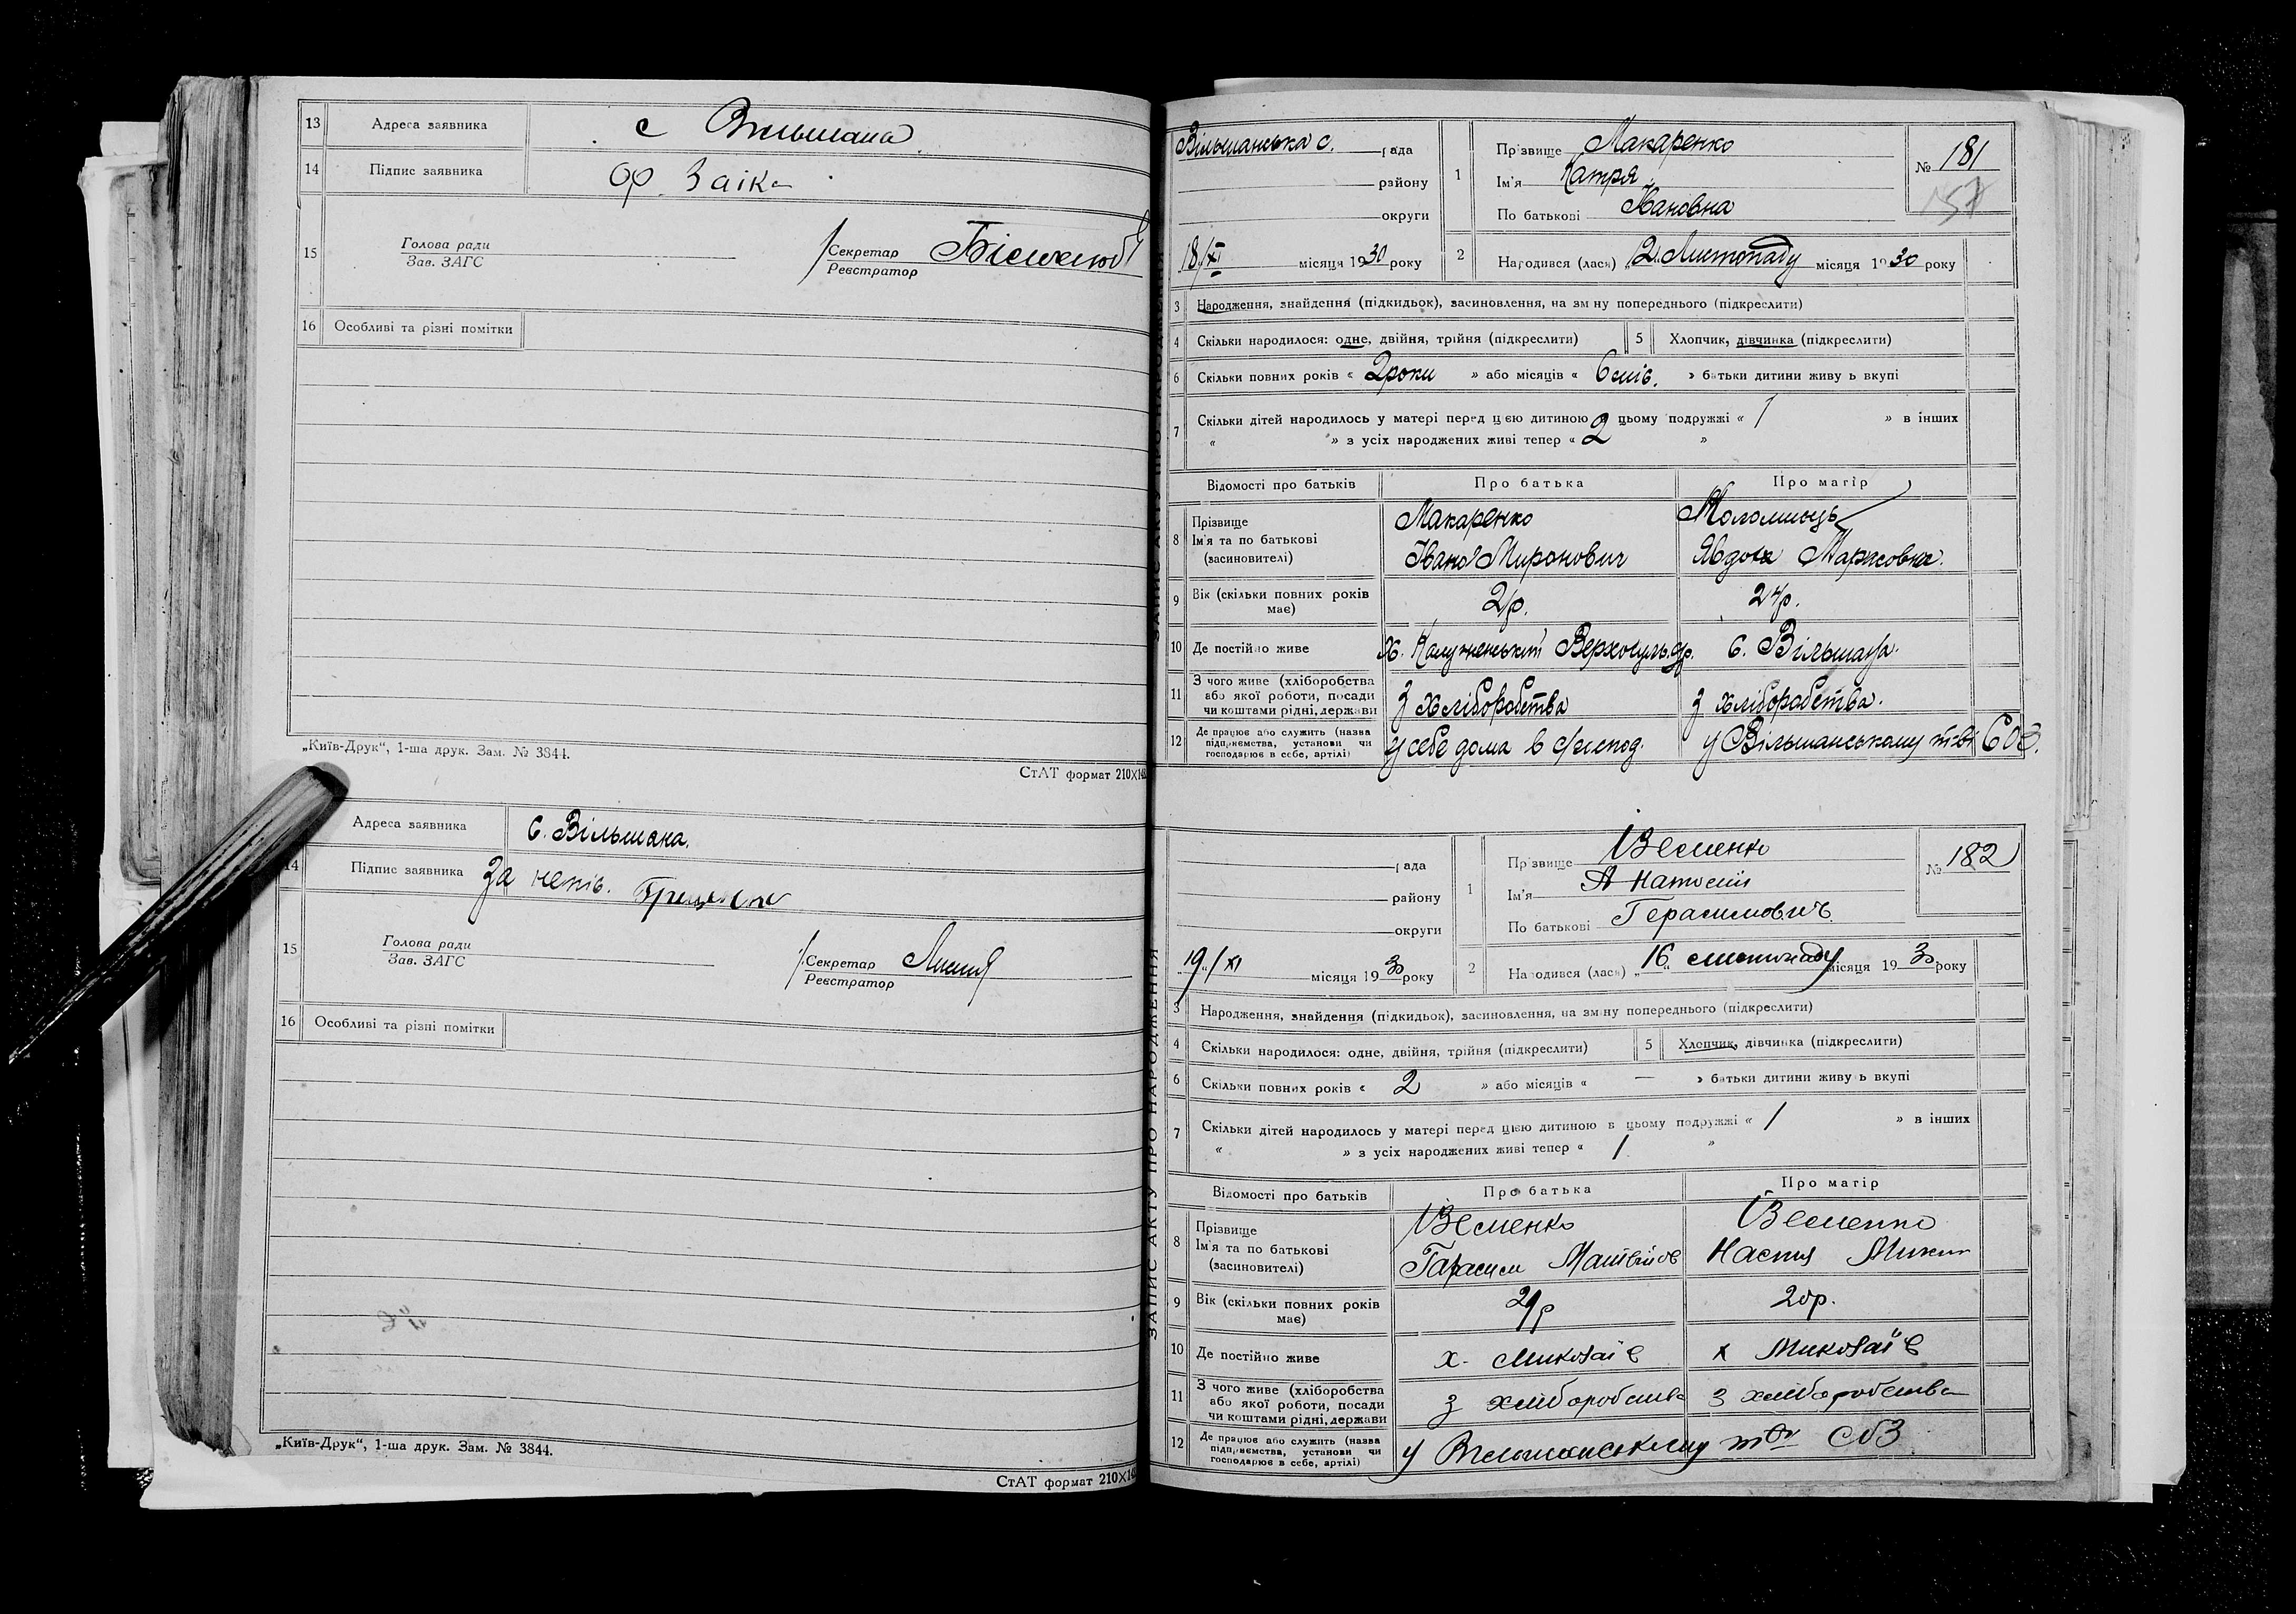 13 Адреса заявника с Вильшана
14 Підпис заявника Ор. Заіка
15 Голова ради
Зав. ЗАГС
Секретар
Реєстратор
16 Особливі та різні помітки
„Київ-Друк“, 1-ша друк. Зам. № 3844.
СтАТ формат 210×14
Адреса заявника с. Вільшана.
14 Підпис заявника За непис.
15 Голова ради
Зав. ЗАГС
Секретар
Реєстратор
16 Особливі та різні помітки
„Київ-Друк“, 1-ша друк. Зам. № 3844.
СтАТ формат 210×14
ЗАПИС АКТУ ПРО НАРОДЖЕННЯ
Вільшанська с. рада
району
округи
18/XI місяця 1930 року
1 Прізвище Макаренко
Ім'я Катря
По батькові Івановна
№ 181
157
2 Народився (лася) „2. Листопаду місяця 1930 року
3 Народження, знайдення (підкидьок), засиновлення, на зміну попереднього (підкреслити)
4 Скільки народилося: одне, двійня, трійня (підкреслити) 5 Хлопчик, дівчинка (підкреслити)
6 Скільки повних років « 2 роки » або місяців « 6 міс. » батьки дитини живуть вкупі
7 Скільки дітей народилось у матері перед цією дитиною 2 цьому подружжі « 1 » в інших
« » з усіх народжених живі тепер « 2 »
Відомості про батьків Про батька Про матір
8 Прізвище
Ім'я та по батькові
(засиновителі)
Макаренко
Іван Миронович
Явдоха Тарасовна.
9 Вік (скільки повних років має) 24р.
10 Де постійно живе с. Вільшана.
11 З чого живе (хліборобства або якої роботи, посади чи коштами рідні, держави
з хліборобства з хліборобства.
12 Де працює або служить (назва підприємства, установи чи господарює в себе, артілі)
у себе дома в у Вільшанському т-ві СОЗ.
рада
району
округи
19/XI місяця 1930 року
1 Прізвище Весменко
Ім'я Анатолій
По батькові Герасимович
№ 182
2 Народився (лася) „16“ листопаду місяця 1930 року
3 Народження, знайдення (підкидьок), засиновлення, на зміну попереднього (підкреслити)
4 Скільки народилося: одне, двійня, трійня (підкреслити) 5 Хлопчик, дівчинка (підкреслити)
6 Скільки повних років « 2 » або місяців « — » батьки дитини живуть вкупі
7 Скільки дітей народилось у матері перед цією дитиною в цьому подружжі « 1 » в інших
« » з усіх народжених живі тепер « 1 »
Відомості про батьків Про батька Про матір
8 Прізвище
Ім'я та по батькові
(засиновителі)
Весменко Весменко
Гарасим Матвійов Настя Микит
9 Вік (скільки повних років має) 20р.
10 Де постійно живе х. Миколаїв х Миколаїв
11 З чого живе (хліборобства або якої роботи, посади чи коштами рідні, держави
з хліборобства з хліборобства
12 Де працює або служить (назва підприємства, установи чи господарює в себе, артілі)
у Вильшанському т-ві СОЗ